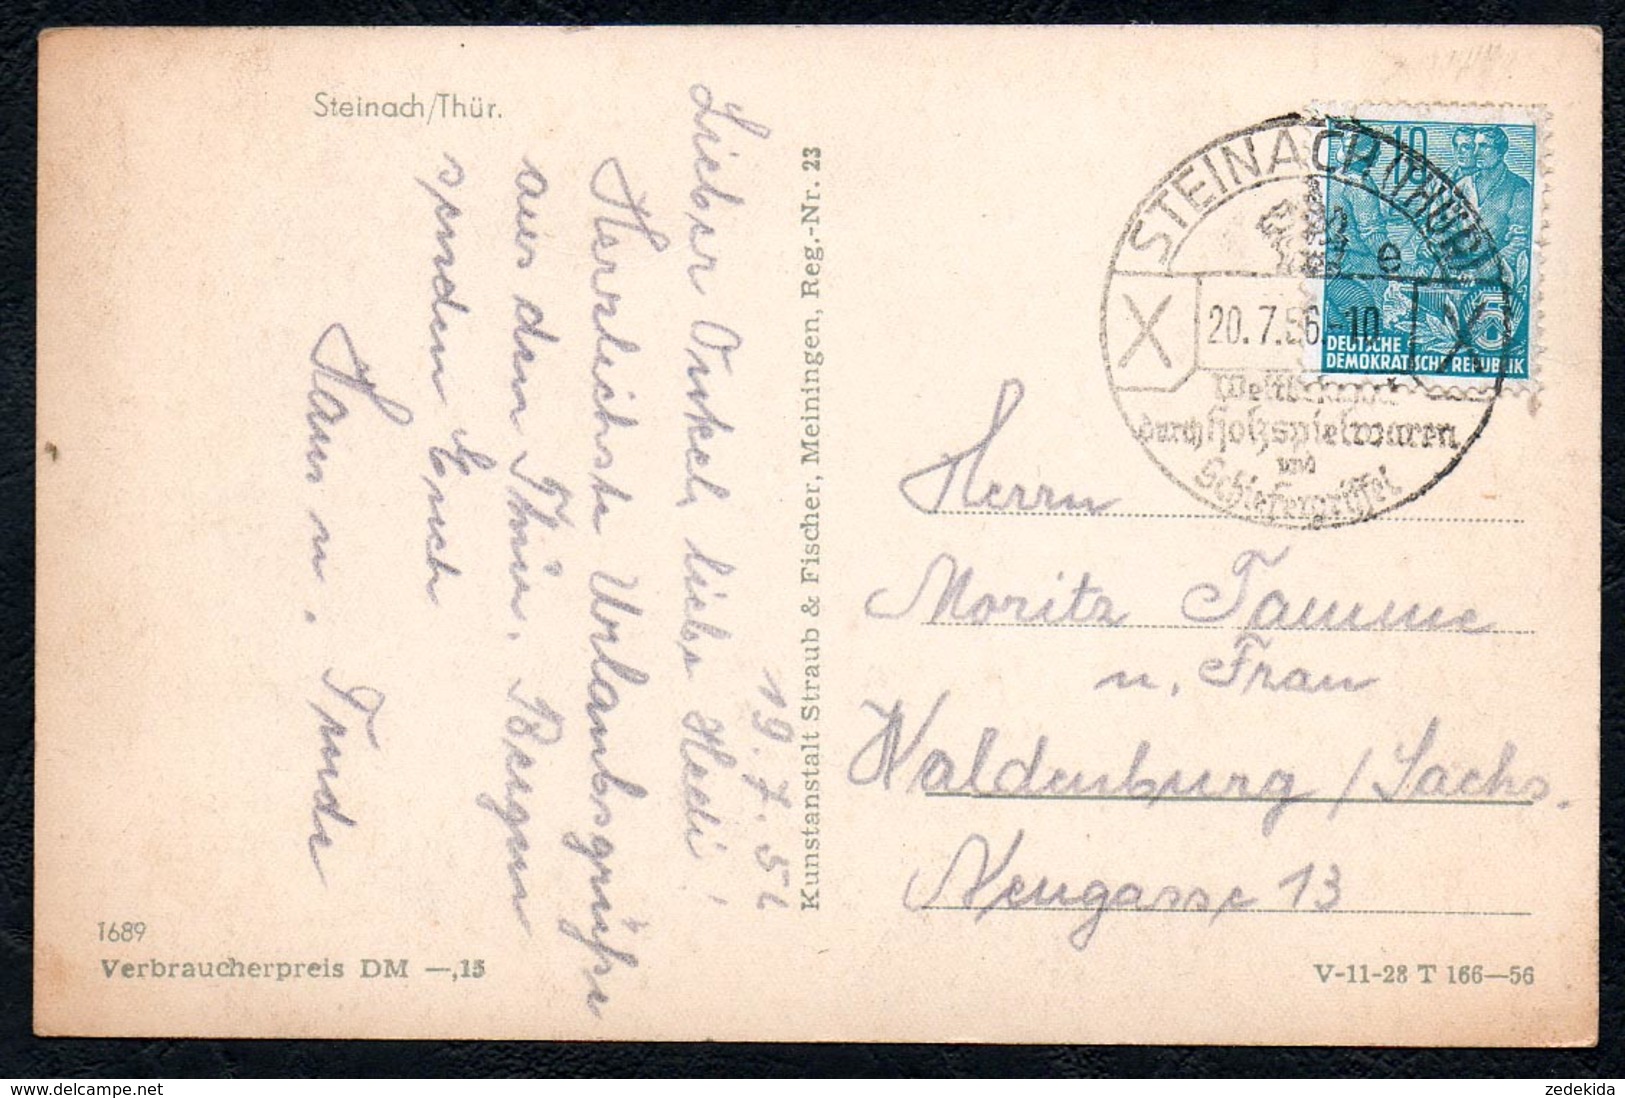 Steinach/Thür.
19.7.56
Lieber Onkel, liebe Hedi!
Herzlichste Urlaubsgrüße
aus den Thür. Bergen
senden Euch
Hans u. Trude
1689
Verbraucherpreis DM —,15
Kunstanstalt Straub & Fischer, Meiningen, Reg.-Nr. 23
10
DEUTSCHE
DEMOKRATISCHE REPUBLIK
STEINACH (THÜR)
e
20.7.56-10
Weltbekannt
durch Holzspielwaren
und
Schiefergriffel
Herrn
Moritz Tamme
u. Frau
Waldenburg/Sachs.
Neugasse 13
V-11-28 T 166—56
zedekida